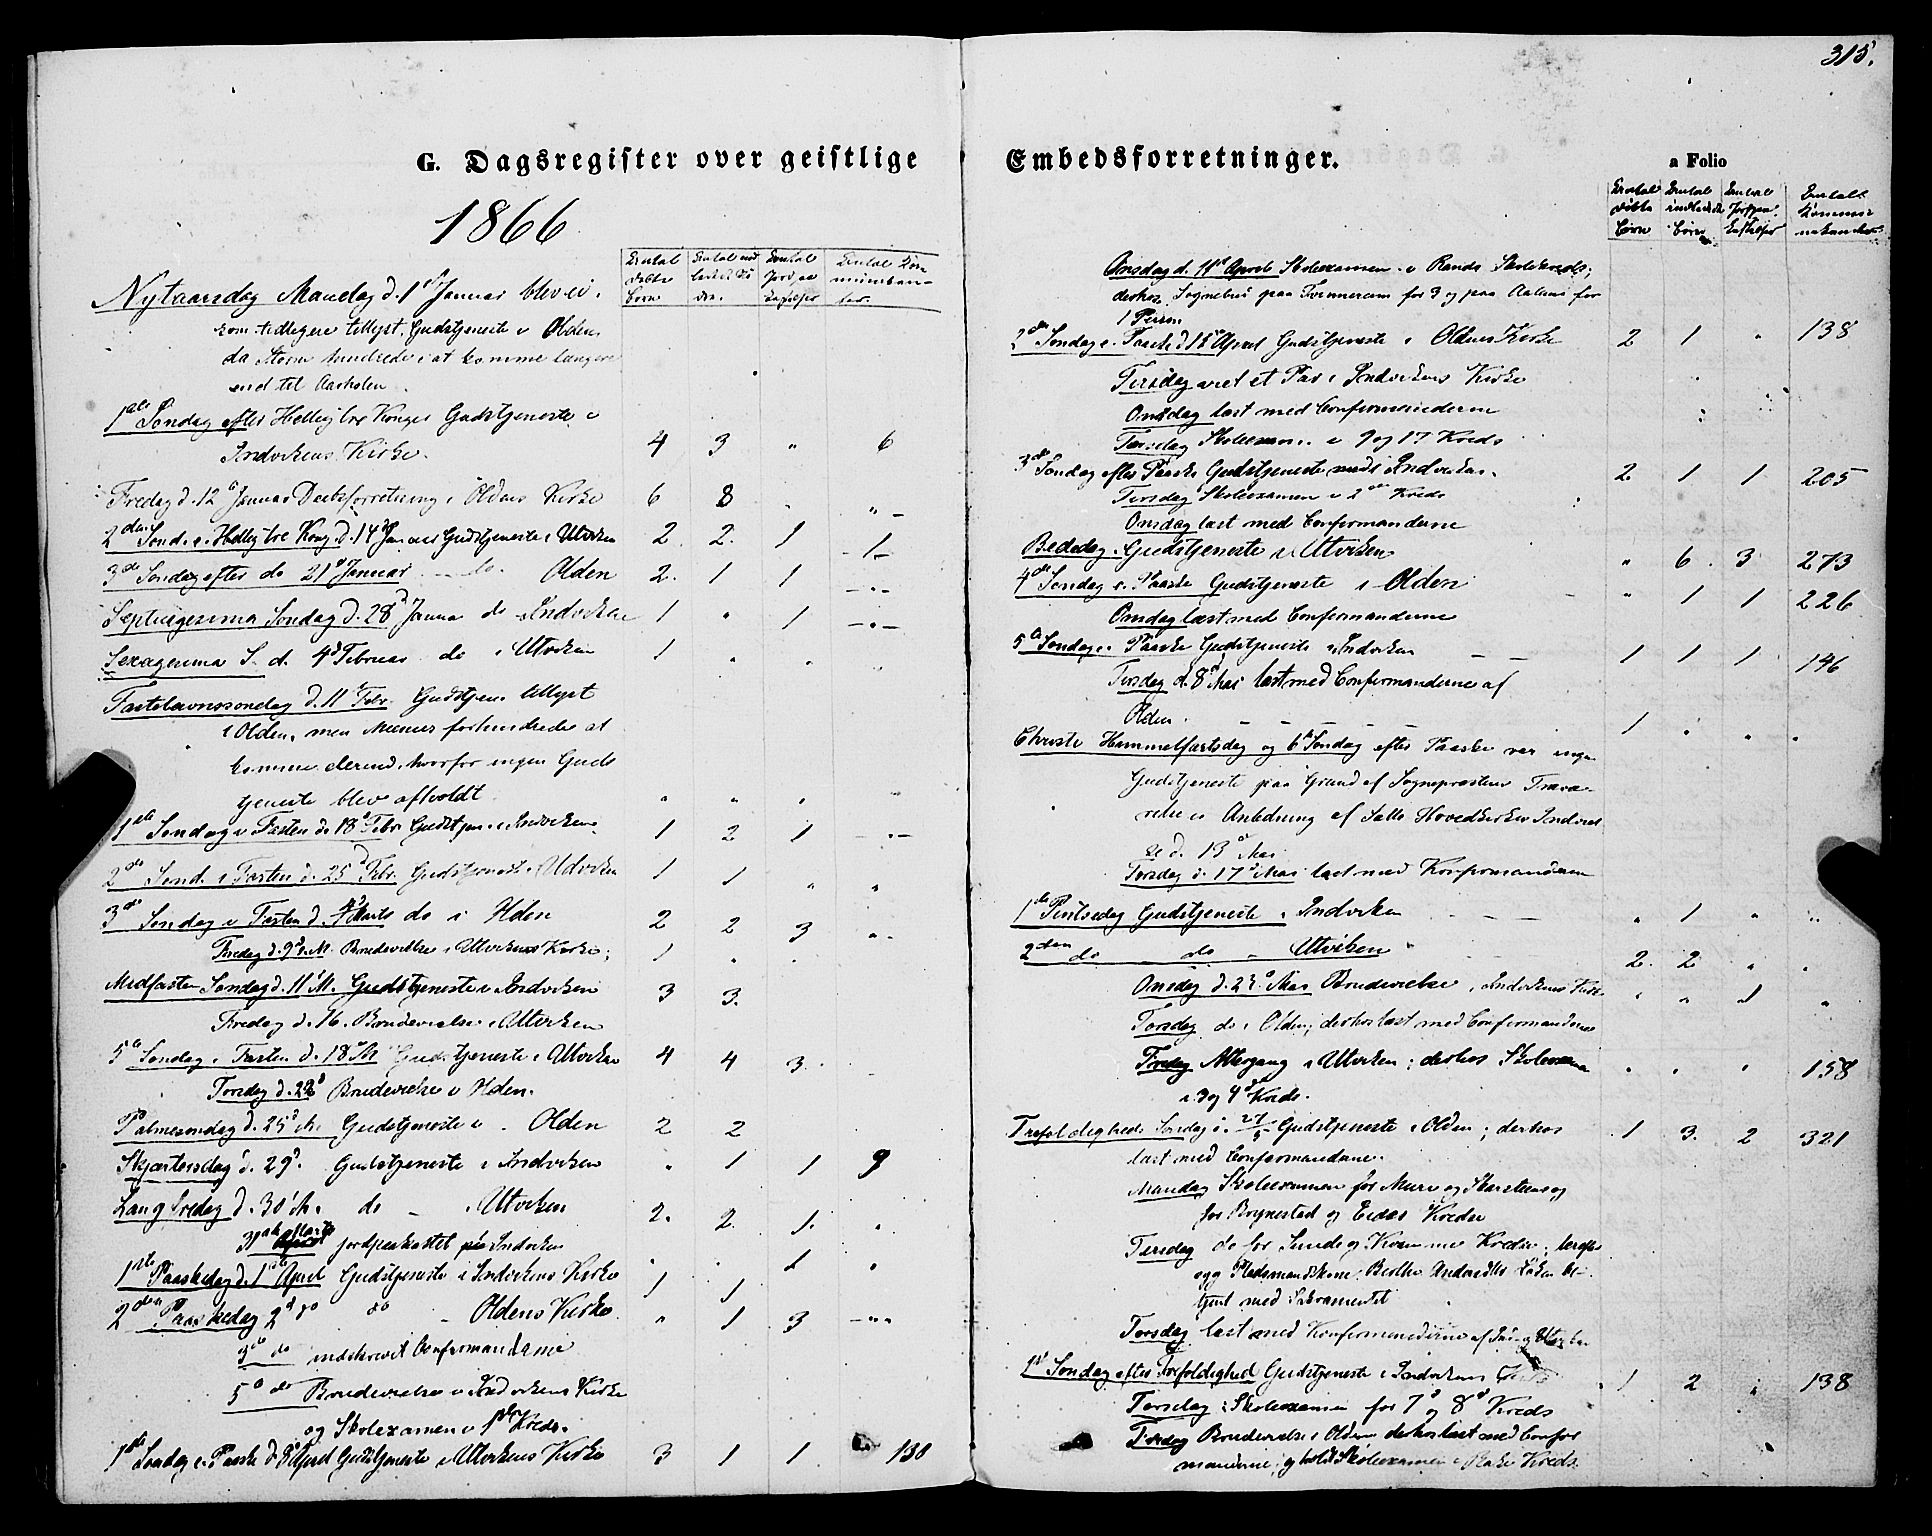 315.
G. Dagsregister over geistlige Embedsforretninger. a Folio
1866
Antal døbte Børn
Antal
Antal
Antal
Nytaarsdag Mandag d. 1ste Januar blev ei,
som tidligere tillyst, Gudstjeneste i Olden,
da Storm hindrede i at komme længere
end til
1ste Søndag efter Hellig tre Konger Gudstjeneste i
Indvikens Kirke. 4 3 " 6
Fredag d. 12 Januar Daabsforretning i Oldens Kirke 6 8 " "
2den Sønd. e. Hellig tre Kong. d. 14 Januar Gudstjeneste i Utviken 2 2 1 -1-
3de Søndag efter do 21 Januar do Olden 2. 1 1 -"-
Septuagesima Søndag d. 28 Januar do Indviken 1 " 1 -"-
Sexagesima S. d. 4 Februar do i Utviken 1 " " "
Fastelavnssøndag d. 11 Febr. Gudstjen. tillyst
i Olden, men forhindrede at
komme derind, hvorfor ingen Guds
tjeneste blev afholdt " " " "
1ste Søndag i Fasten d. 18 Febr. Gudstjen. i Indviken 1 2 1 -"-
2den Sønd. i Fasten d. 25 Febr. Gudstjeneste i Utviken 1 1 " "
3de Søndag i Fasten d. Marts do i Olden 2 2 3 "
Fredag d. 9 M. Brudevielse i Utvikens Kirke; 1 " "
Midfasten Søndag d. 11 M. Gudstjeneste i Indviken 3 3.
Fredag d. 16. Brudevielse i Utviken
5 Søndag i Fasten d. 18 M Gudstjeneste i Utviken 4 4 3
Torsdag d. 22 Brudevielse i Olden.
Palmesøndag d. 25 M. Gudstjeneste i Olden 2 2
Skjærtorsdag d. 29. Gudstjeneste i Indviken " 1 1 9
Langfredag d. 30 M. do Utviken 2. 2. 1. "
31 Marts jordpaakastet paa Indviken " " 1 "
1ste Paaskedag d. 1ste April Gudstjeneste i Indvikens Kirke 1 1
2den Paaskedag 2 do do Oldens Kirke " 1 3 -""
3 do indskrevet Confirmanderne
5 do Brudevielse i Indvikens Kirke
og Skoleexamen i 1ste Kreds.
1ste Søndag e. Paaske d. 8 April Gudstjeneste i Utvikens Kirke 3 1 1 130
Antal døbte Børn
Antal Børn
Antal
Antal
Onsdag d. 11 April Skoleexamen i Rands Skolekreds;
derhos Sognebud paa for 3 og paa for
1 Person
2den Søndag e. Paaske d. 15 April Gudstjeneste i Oldens Kirke 2 1 " 138
Tirsdag viet et Par i Indvikens Kirke
Onsdag læst med Confirmanderne
Torsdag Skoleexam. i 9 og 17 Kreds
3de Søndag efter Paaske Gudstjeneste Indviken. 2 1 1 205
Tirsdag Skoleexamen i 2 Kreds
Onsdag læst med Confirmanderne
Bededag Gudstjeneste i Utviken " 6 3 273
4de Søndag e. Paaske Gudstjeneste i Olden " 1 1 226
Onsdag læst med Confirmanderne
5te Søndag e. Paaske Gudstjeneste i Indviken 1 1 1 146
Tirsdag d. 8 Mai læst med Confirmanderne af
Olden. 1 " " "
Christi Himmelfartsdag og 6 Søndag efter Paaske var ingen
Gudstjeneste paa Grund af Sognepræstens Fravæ-
relse i Anledning af Hovedkirke
d. 13 Mai
Torsdag d. 17 Mai læst med Konfirmanderne
1ste Pintsedag Gudstjeneste i Indviken " 1 " "
2den do do Utviken 2. 2 " "
Onsdag d. 23 Mai Brudevielse i Indvikens Kirke " " 1 "
Torsdag do i Olden; derhos læst med Confirmanderne
Fredag Altergang i Utviken; derhos Skoleexamen " " " 158
i 3 og 4 Kreds.
Trefoldigheds Søndag d. 27/5 Gudstjeneste i Olden; derhos 1 3. 2 321
læst med Confirmanderne.
Mandag Skoleexamen for og
for og Kredse
Tirsdag do for Sunde og Kredse;
Pladsmandskone
tjent med Sacramentet
Torsdag læst med Konfirmanderne af
1ste Søndag efter Trefoldighed Gudstjeneste i Indvikens Kirke 1 2 " 138
Torsdag Skoleexamen for 7 og 8 Kreds
Fredag Brudevielse i Olden derhos læst med Confir
manderne, og holdt Skoleexamen i Kreds.